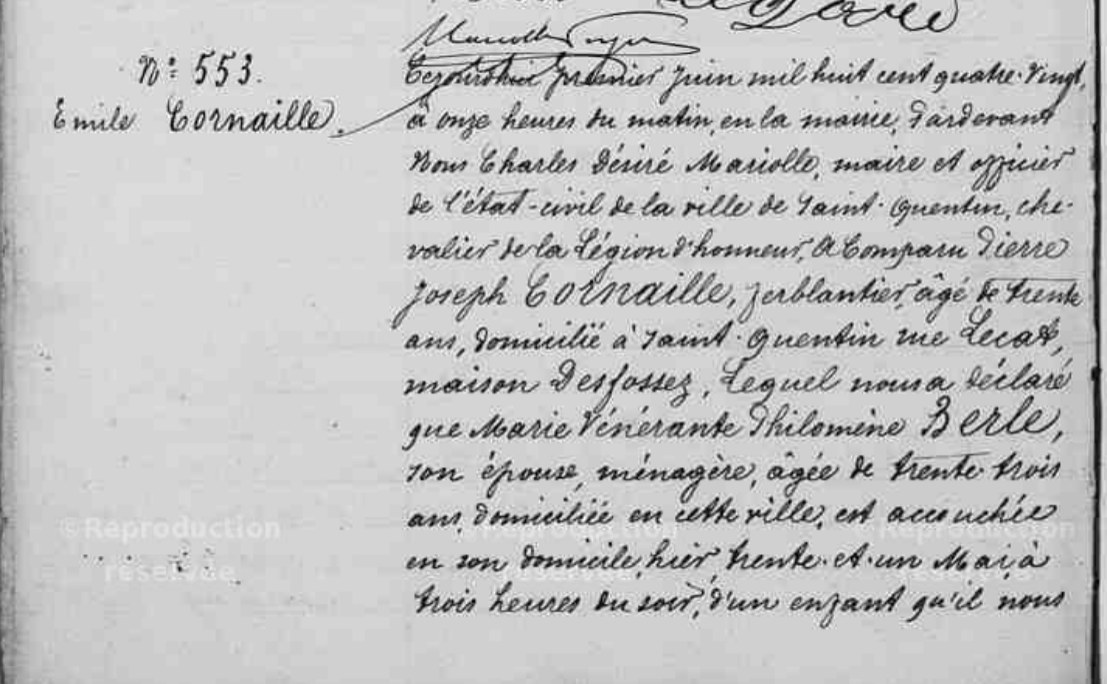 Nº 553.
Emile Cornaille
Cejourd'hui premier Juin mil huit cent quatre-vingt,
à onze heures du matin, en la mairie, Pardevant
Nous Charles Désiré Mariolle, maire et officier
de l'état-civil de la ville de Saint-Quentin, che-
valier de la Légion d'honneur, A Comparu Pierre
Joseph Cornaille, ferblantier, âgé de trente
ans, domicilié à Saint-Quentin rue Lecat,
maison Desfossez, Lequel nous a déclaré
que Marie Vénérante Philomène Berle,
son épouse, ménagère, âgée de trente-trois
ans, domiciliée en cette ville, est accouchée
en son domicile, hier trente-et-un Mai, à
trois heures du soir, d'un enfant qu'il nous
©Reproduction réservée